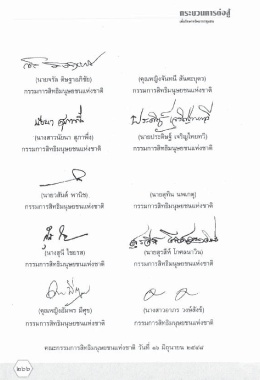 กระบวนการต่อสู้
(นายจรัล ดิษฐาอภิชัย) (คุณหญิงจันทนี สันตะบุตร)
กรรมการสิทธิมนุษยชนแห่งชาติ กรรมการสิทธิมนุษยชนแห่งชาติ
(นางสาวนัยนา สุภาพึ่ง) (นายประดิษฐ์ เจริญไทยทวี)
กรรมการสิทธิมนุษยชนแห่งชาติ กรรมการสิทธิมนุษยชนแห่งชาติ
(นายวสันต์ พานิช) (นายสุทิน นพเกตุ)
กรรมการสิทธิมนุษยชนแห่งชาติ กรรมการสิทธิมนุษยชนแห่งชาติ
(นางสุนี ไชยรส) (นายสุรสีห์ โกศลนาวิน)
กรรมการสิทธิมนุษยชนแห่งชาติ กรรมการสิทธิมนุษยชนแห่งชาติ
(คุณหญิงอัมพร มีศุข) (นางสาวอาภร วงษ์สังข์)
กรรมการสิทธิมนุษยชนแห่งชาติ กรรมการสิทธิมนุษยชนแห่งชาติ
คณะกรรมการสิทธิมนุษยชนแห่งชาติ วันที่ ๑๖ มิถุนายน ๒๕๔๘
๒๖๖